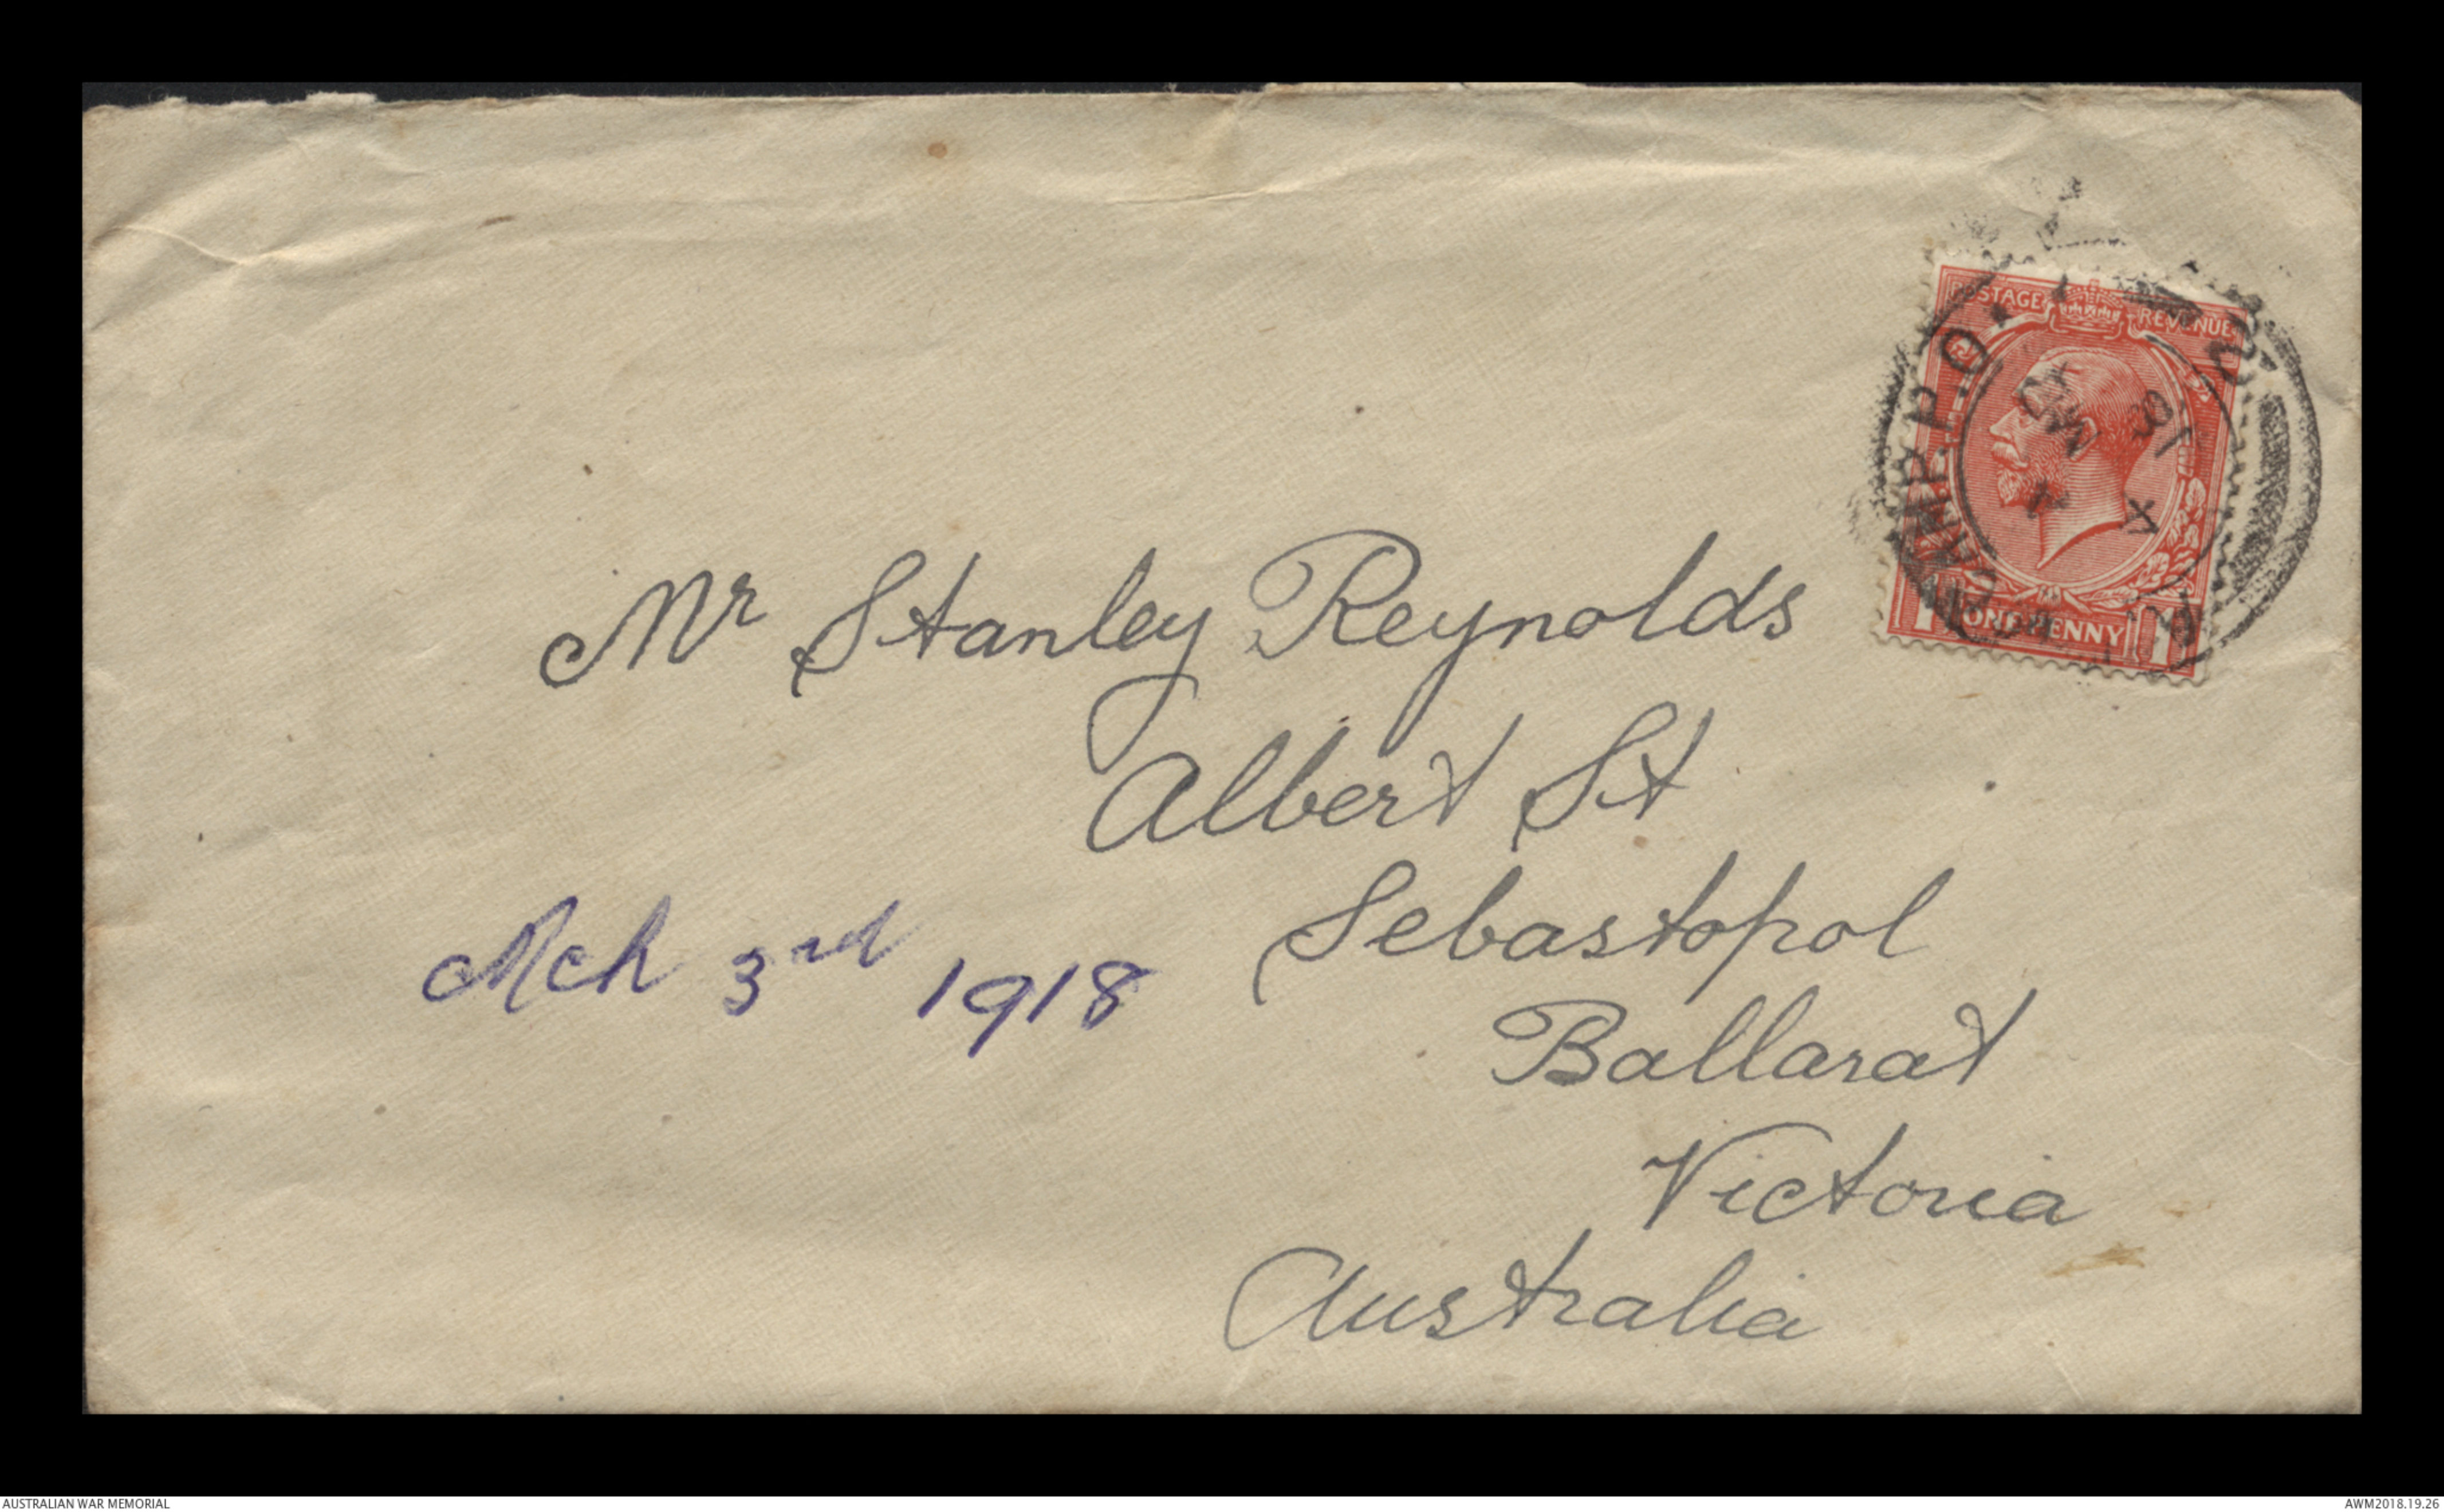 POSTAGE REVENUE
CAMP. P.O.
MR
18
4
X
ONE PENNY
1 1
Mr Stanley Reynolds
Albert St
Sebastopol
Mch 3rd 1918
Ballarat
Victoria
Australia
AUSTRALIAN WAR MEMORIAL
AWM2018.19.26